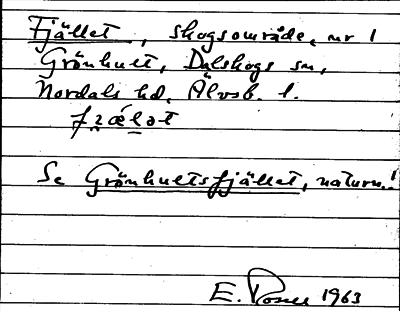 Fjället, skogsområde, nr 1
Grönhult, Dalskogs sn,
Nordals hd, Älvsb. l.
Se Grönhultsfjället, naturn.!
E. 1963